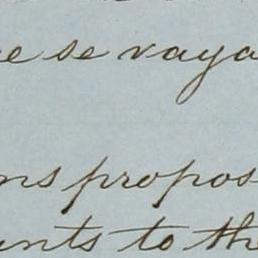 e se vaya
ns propos
nts to the